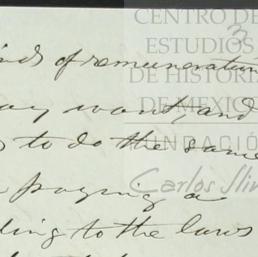 CENTRO DE
ESTUDIOS
DE HISTORIA
DE MEXICO
FUNDACIÓN
Carlos Slim
3
inds of remuneration
ay want, and
to do the same
paying a
ding to the laws